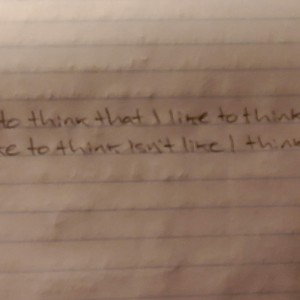 to think that I like to think
ke to think Isn't like I think